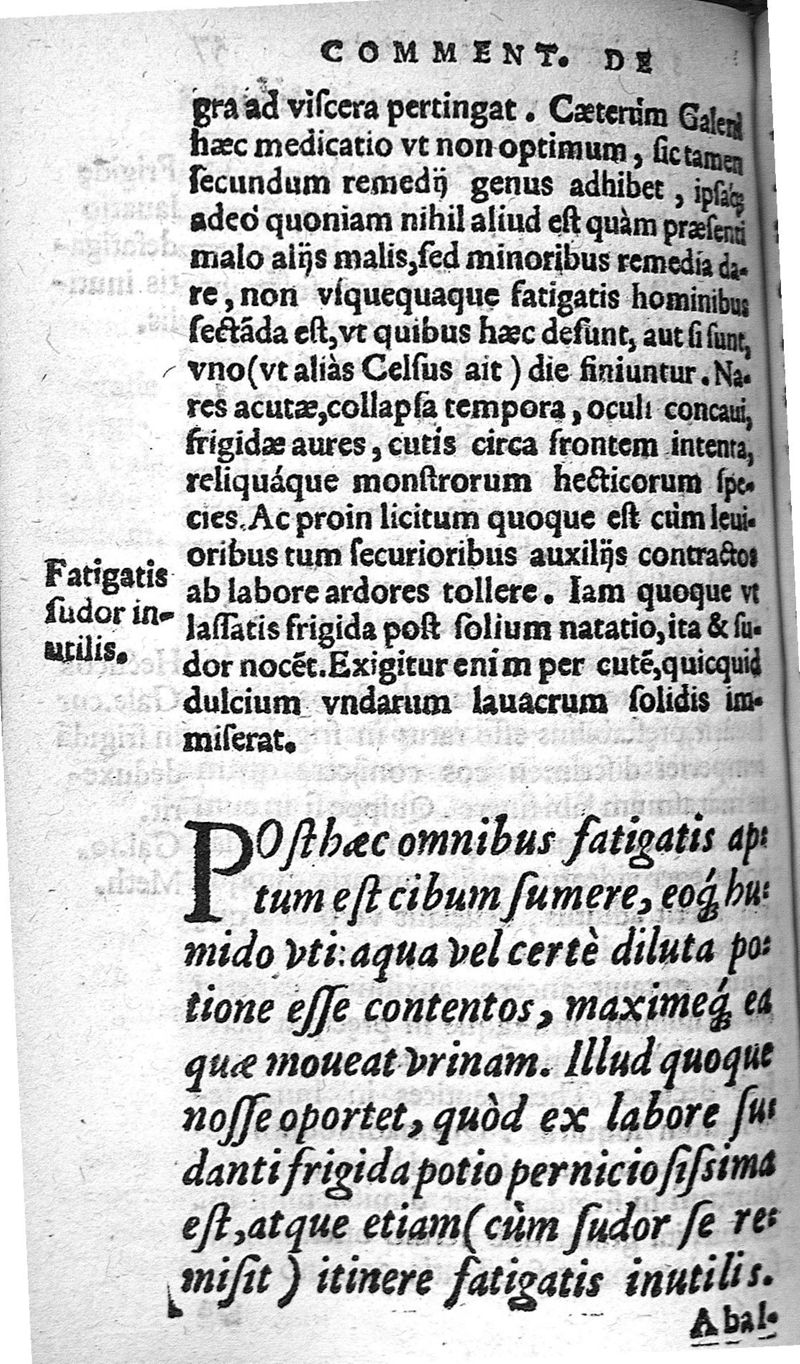 COMMENT. DE
gra ad viſcera pertingat. Cæterùm Galeni
hæc medicatio vt non optimum, ſic tamen
ſecundum remedij genus adhibet, ipſáq́;
adeo quoniam nihil aliud eſt quàm præſenti
malo alijs malis, ſed minoribus remedia da-
re, non vſquequaque fatigatis hominibus
ſectãda eſt, vt quibus hæc deſunt, aut ſi ſunt,
vno (vt aliàs Celſus ait) die finiuntur. Na-
res acutæ, collapſa tempora, oculi concaui,
frigidæ aures, cutis circa frontem intenta,
reliquáque monſtrorum hecticorum ſpe-
cies. Ac proin licitum quoque eſt cùm leui-
oribus tum ſecurioribus auxilijs contractos
ab labore ardores tollere. Iam quoque vt
laſſatis frigida poſt ſolium natatio, ita & ſu-
dor nocẽt. Exigitur enim per cutẽ, quicquid
dulcium vndarum lauacrum ſolidis im-
miſerat.
Fatigatis
ſudor in-
utilis.
POſt hæc omnibus fatigatis ap-
tum eſt cibum ſumere, eoq́; hu-
mido vti: aqua vel certè diluta po-
tione eſſe contentos, maximeq́; ea
quæ moueat vrinam. Illud quoque
noſſe oportet, quòd ex labore ſu-
danti frigida potio pernicioſiſsima
eſt, atque etiam (cùm ſudor ſe re-
miſit) itinere fatigatis inutilis.
Abal-